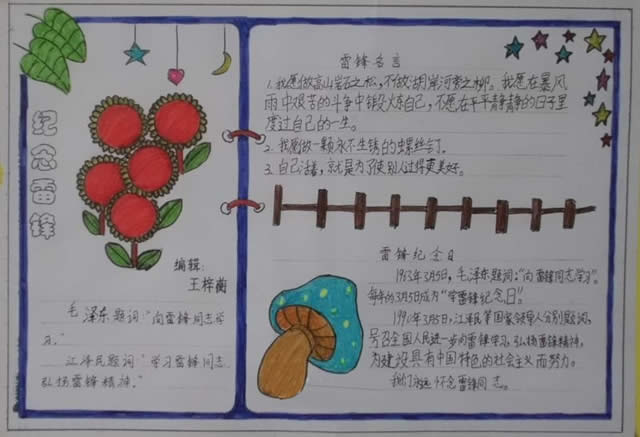 纪念雷锋
编辑:
王梓蘅
毛泽东题词:"向雷锋同志学
习."
江泽民题词"学习雷锋同志
弘扬雷锋精神."
雷锋名言
1.我愿做高山岩石之松,不做湖岸河旁之柳。我愿在暴风
雨中艰苦的斗争中锻炼自己,不愿在平平静静的日子里
度过自己的一生。
2.我愿做一颗永不生锈的螺丝钉.
3.自己活着,就是为了使别人过得更美好。
雷锋纪念日
1963年3月5日,毛泽东题词:"向雷锋同志学习"。
每年的3月5日成为"学雷锋纪念日"。
1990年3月5日,江泽民等国家领导人分别题词,
号召全国人民进一步向雷锋学习,弘扬雷锋精神,
为建设具有中国特色的社会主义而努力。
我们永远怀念雷锋同志。